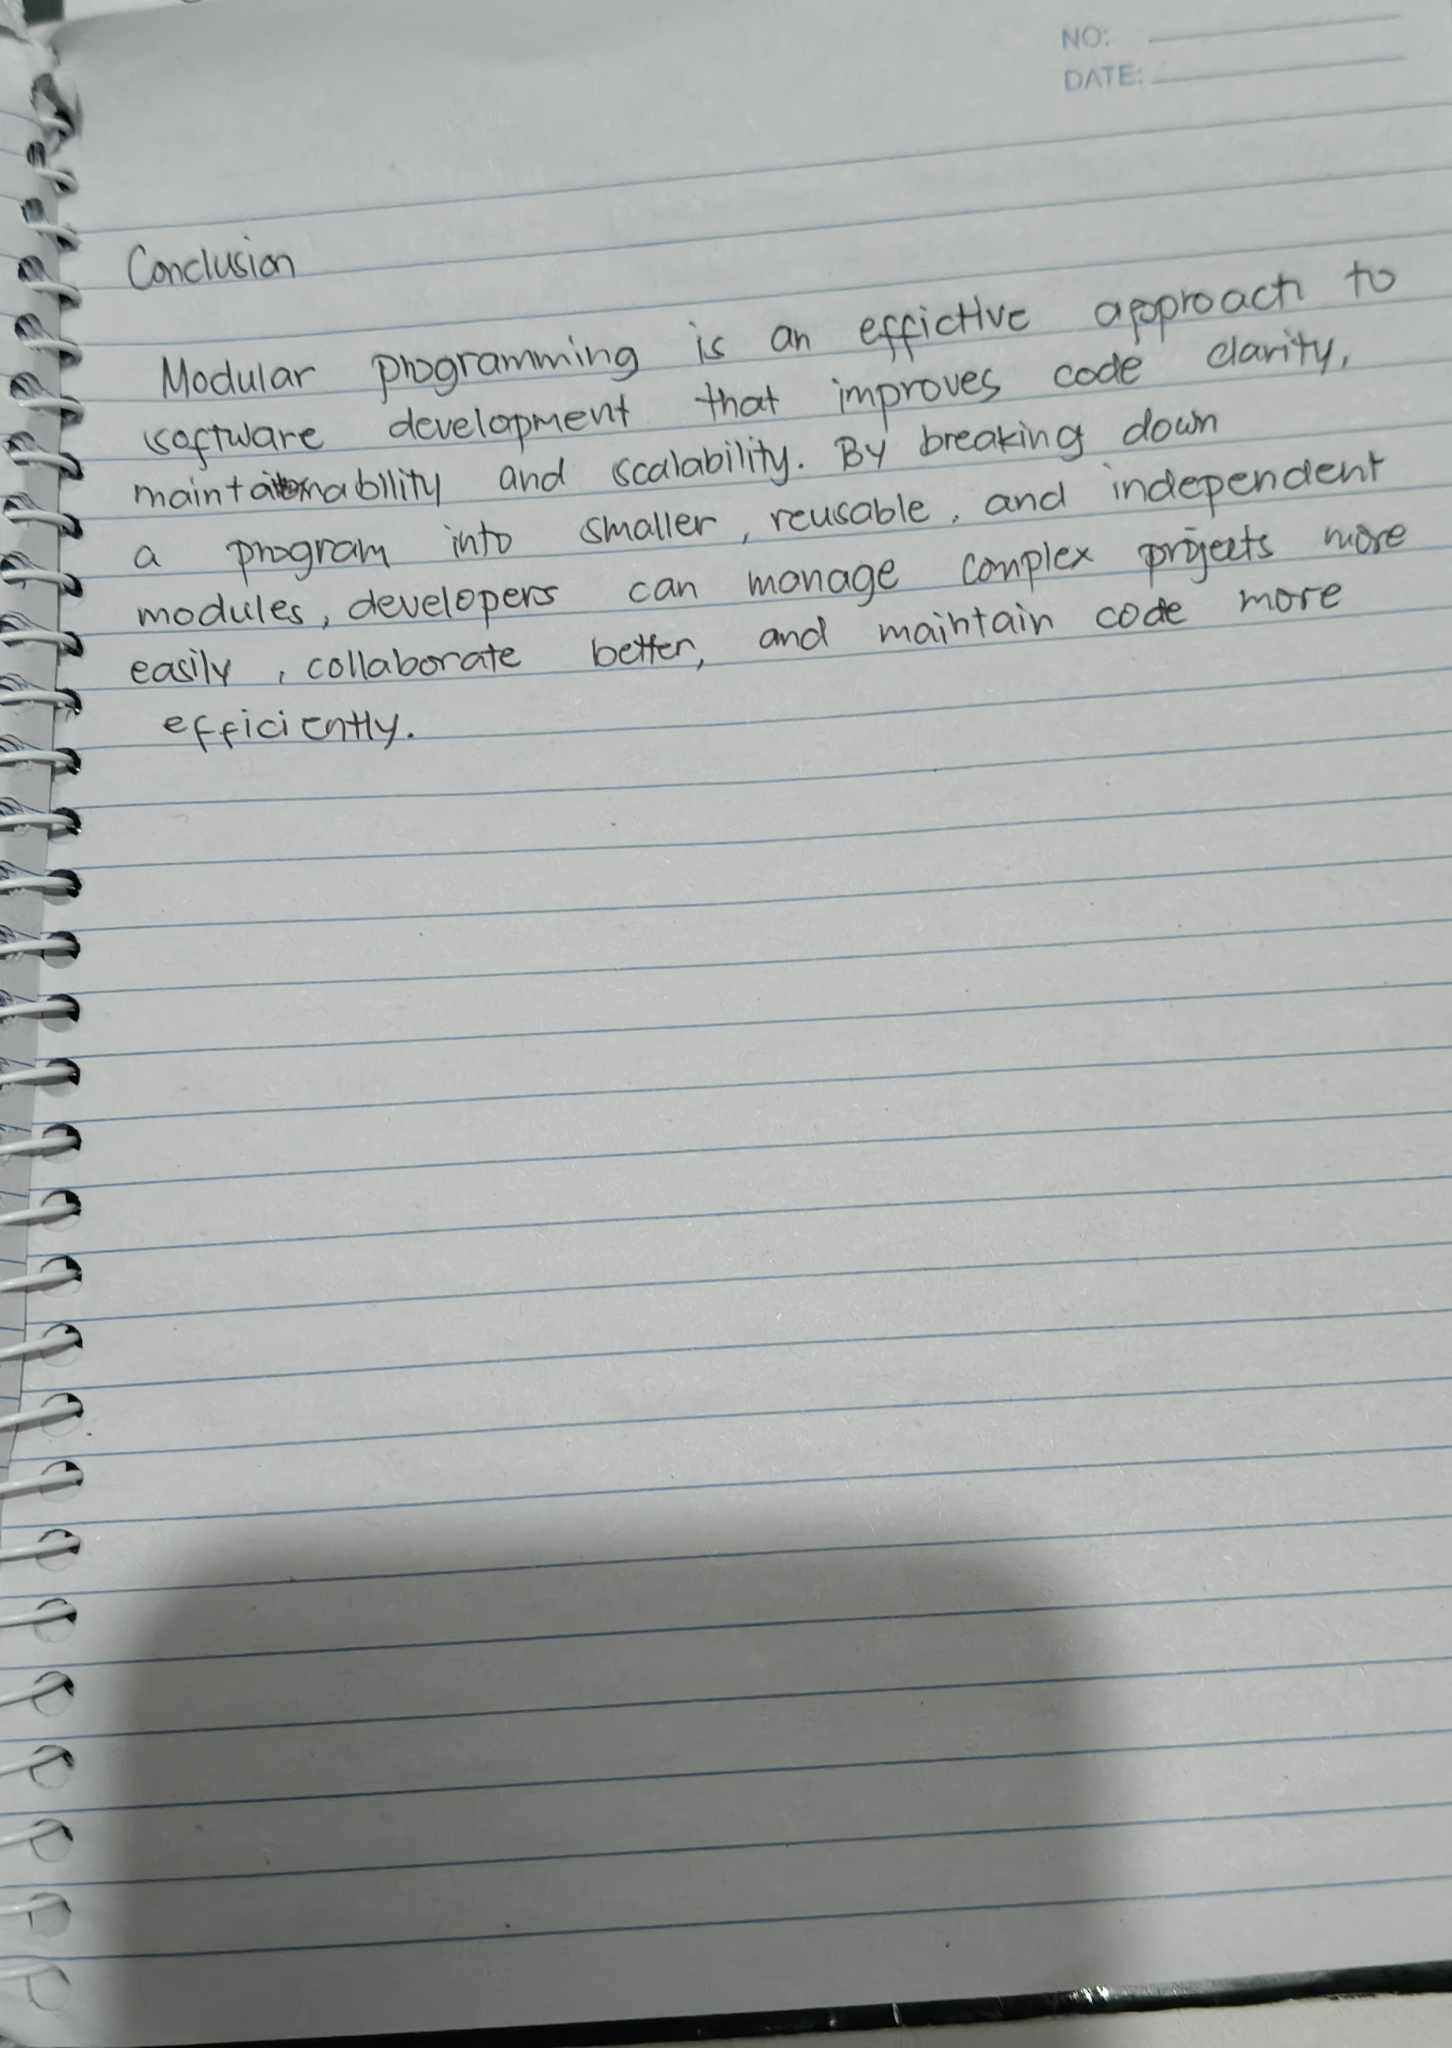 NO:
DATE:
Conclusion
Modular programming is an effictive approach to
software development that improves code clarity,
maintainability and scalability. By breaking down
a program into smaller, reusable, and independent
modules, developers can manage complex projects more
easily, collaborate better, and maintain code more
efficiently.